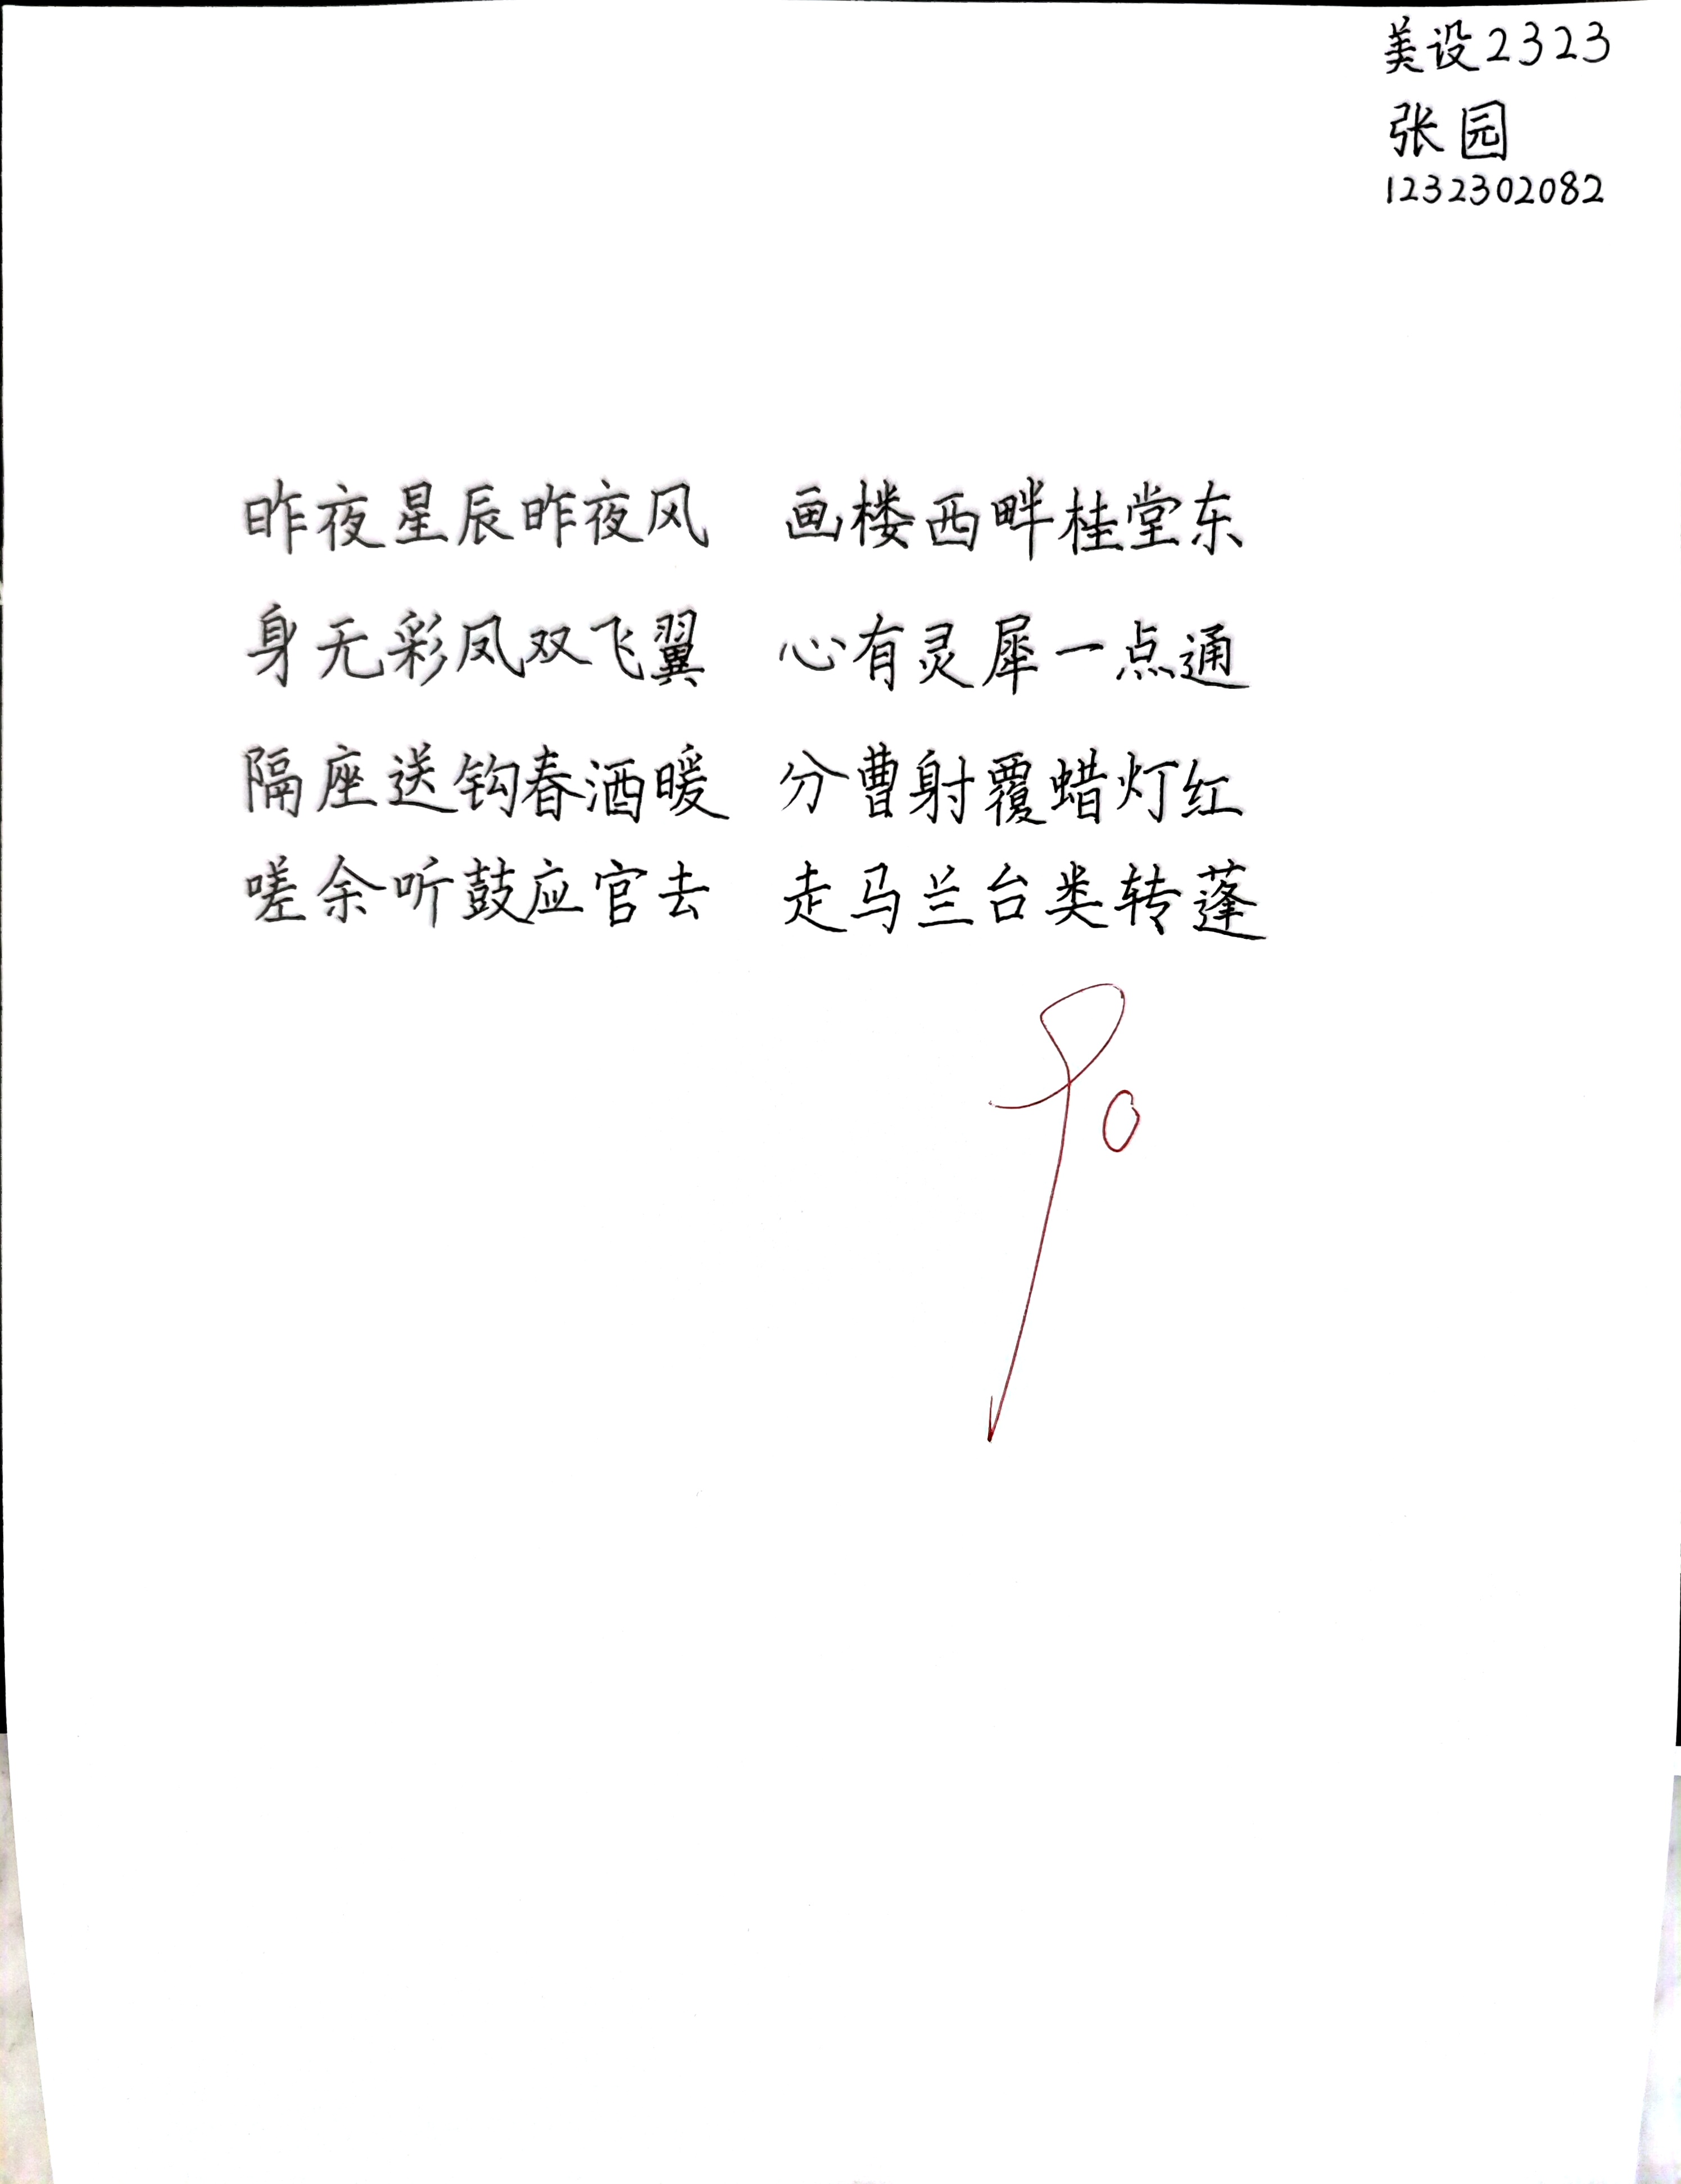 美设2323
张园
1232302082
昨夜星辰昨夜风 画楼西畔桂堂东
身无彩凤双飞翼 心有灵犀一点通
隔座送钩春酒暖 分曹射覆蜡灯红
嗟余听鼓应官去 走马兰台类转蓬
90